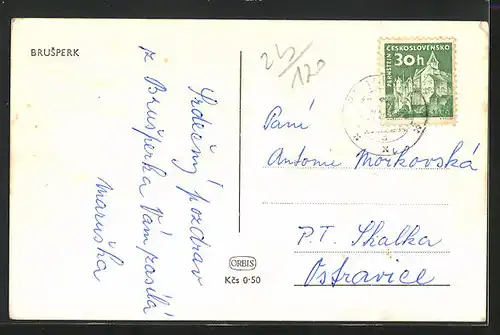 BRUŠPERK
24/120
ČESKOSLOVENSKO
30h
PERNŠTEJN
Srdečný pozdrav
z Brušperka Vám zasílá
Maruška
Paní
Antonie Morkovská
P.T. Skalka
Ostravice
ORBIS
Kčs 0·50